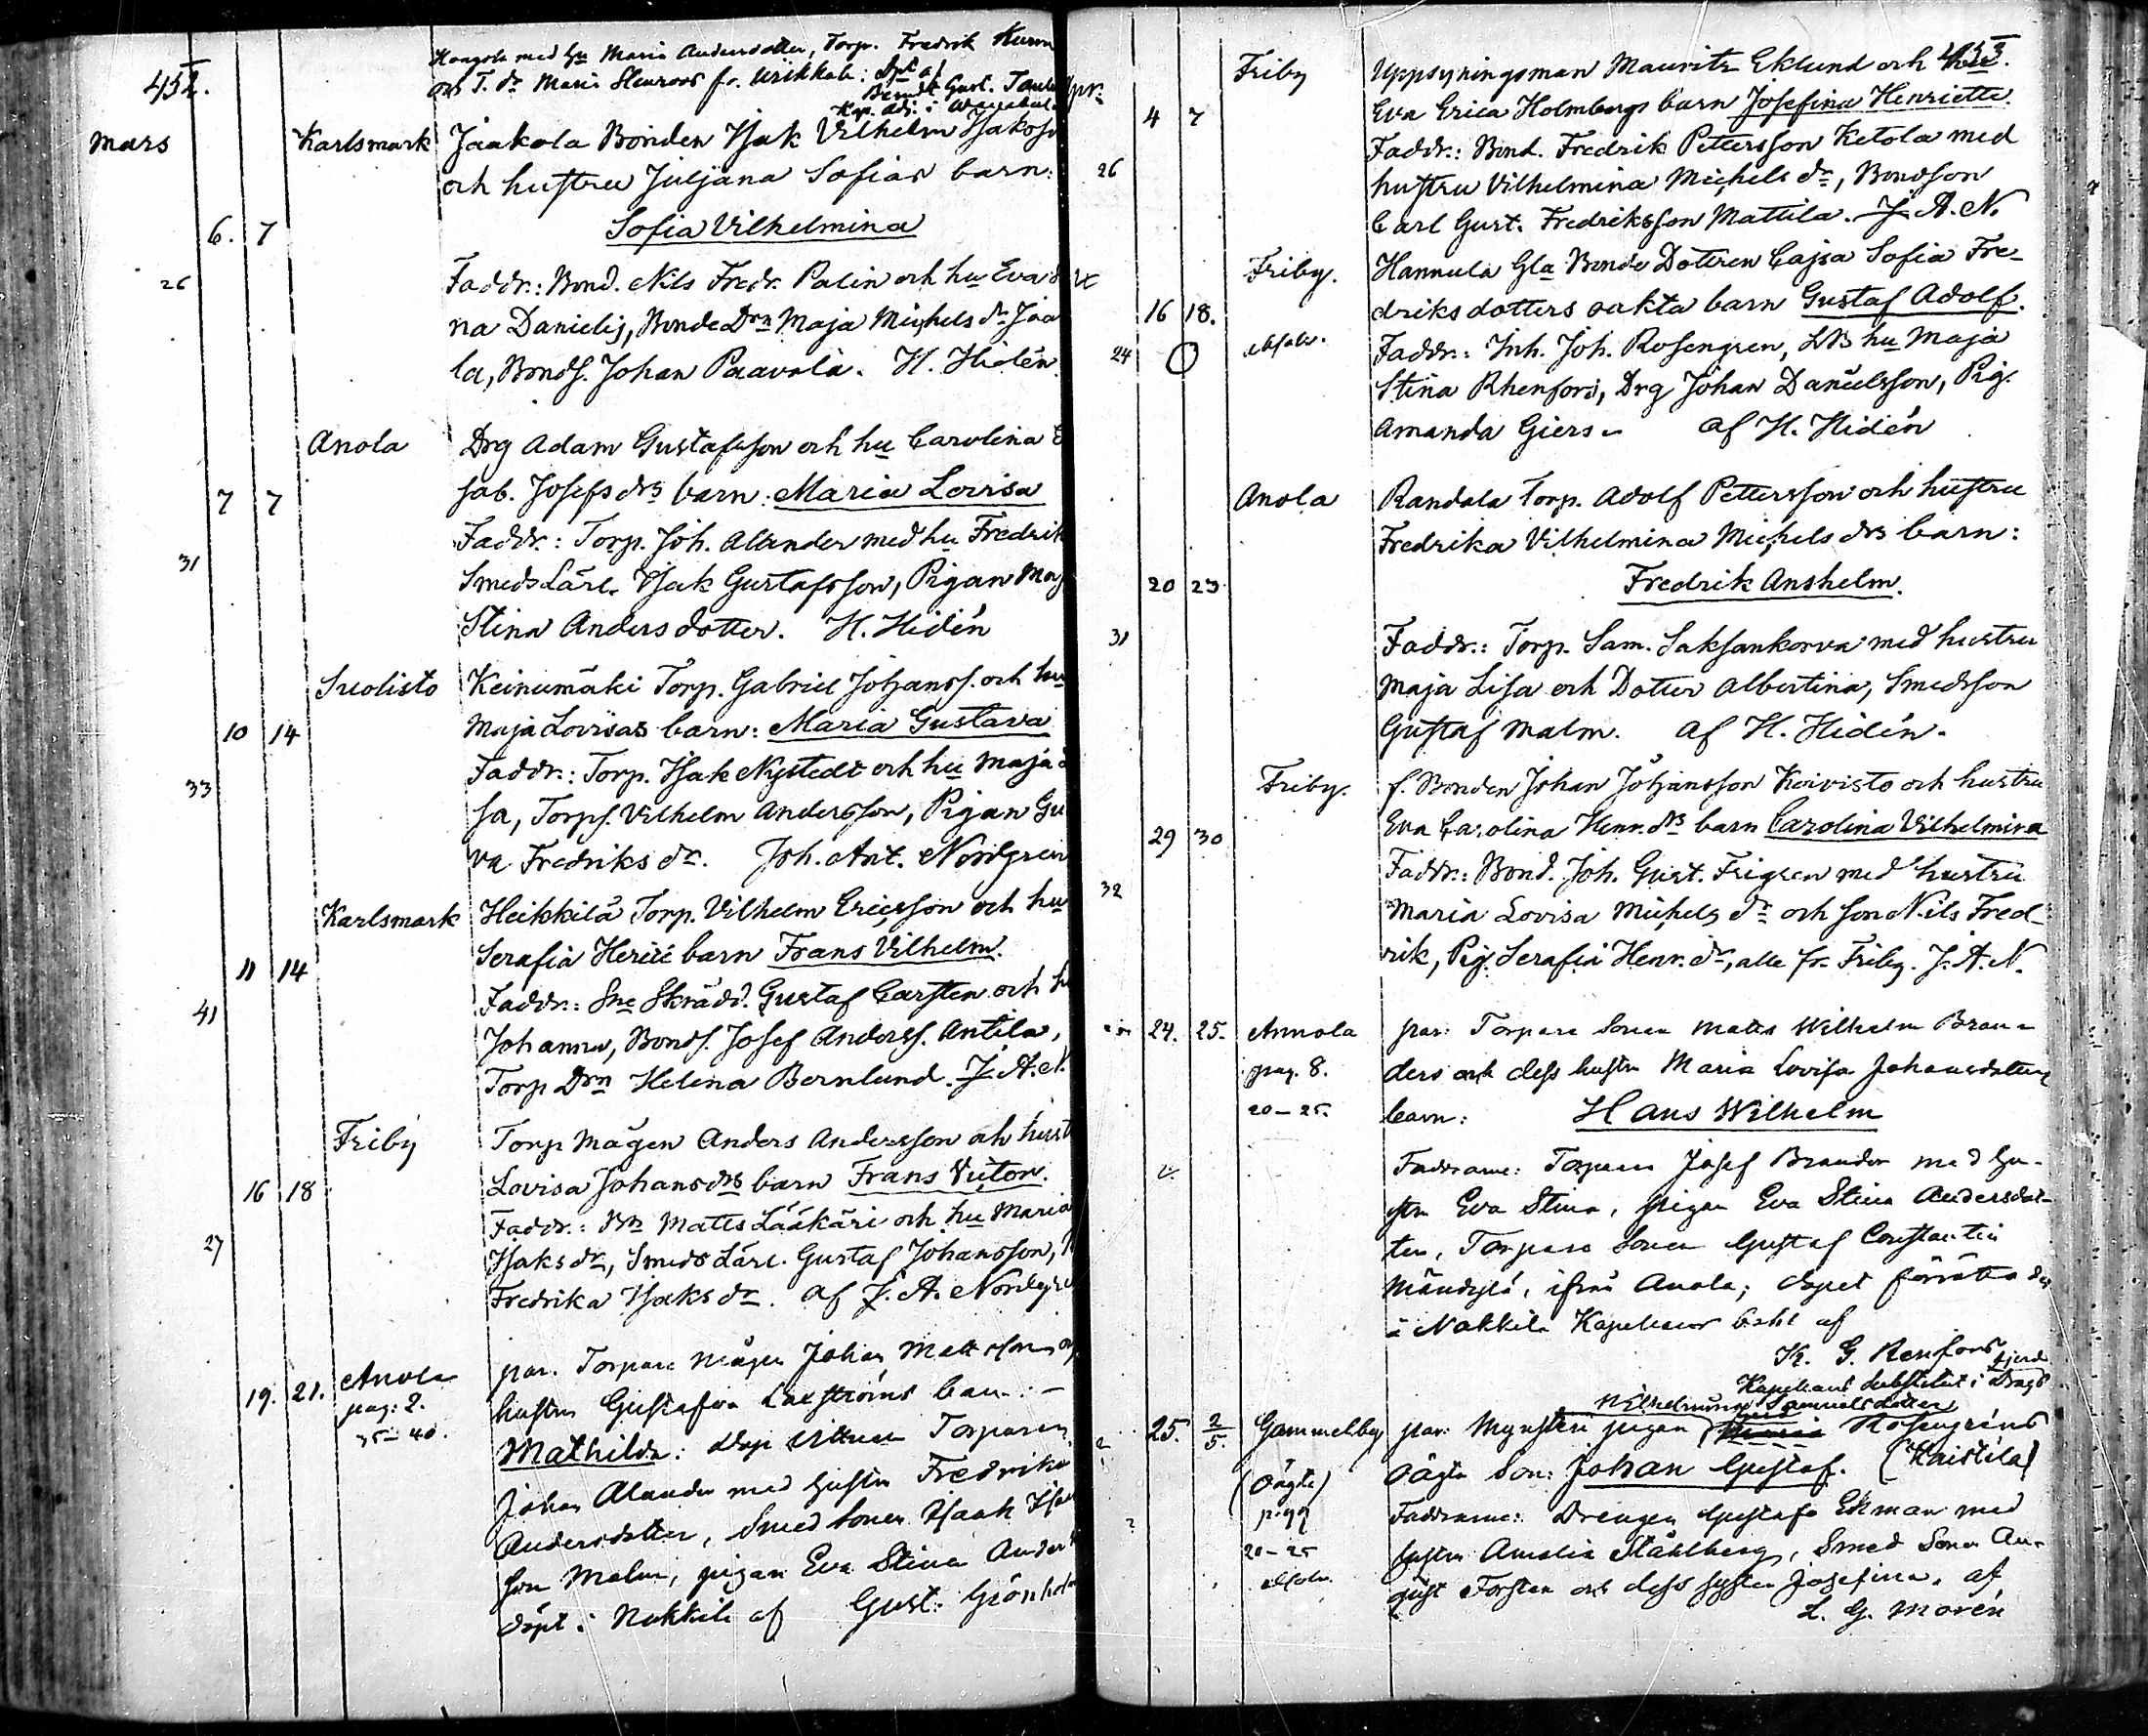 452.
Kangola med hu Maria Andersdotter, Torp. Fredrik
och T. dr Maria Stenroos fr. Krikkala: dpt af
Berndt Gust.
Kap. adj. i
Mars Karlsmark Jaakola Bonden Isak Vilhelm
och hustru Juljana Sofias barn:
6. 7 Sofia Vilhelmina
26 Faddr.: Bond. Nils Fredr. Palin och hu Eva
na Danielis, Bonde Drn Maja Michels dr Jaa
la, Bonds. Johan Paavola. H. Hidén
Anola Drg Adam Gustafsson och hu Carolina
sab. Josefs drs barn: Maria Lovisa
7 7 Faddr.: Torp. Joh. Alander med hu Fredrik
31 Smeds Lärl. Isak Gustafsson, Pigan Maj
Stina Anders dotter. H. Hidén
Suolisto Keinumäki Torp. Gabriel Johanss. och hu
10 14 Maja Lovisas barn: Maria Gustava
33 Faddr.: Torp. Isak Nystedt och hu Maja
sa, Torps. Vilhelm Andersson, Pigan Gu
va Fredriks dr. Joh. Ant. Nordgren
Karlsmark Heikkilä Torp. Vilhelm Ericsson och hu
11 14 Serafia barn Frans Vilhelm.
41 Faddr.: Sne Skrädd. Gustaf Carsten och h
Johanna, Bonds. Josef Anderss. Antila,
Torp Drn Helena Bernlund. J. A. N.
Friby Torp Mågen Anders Andersson och hust
16 18 Lovisa Johans drs barn Frans Victor.
27 Faddr.: Matts Lääkäri och hu Maria
Isaks dr, Smeds Lärl. Gustaf Johansson,
Fredrika Isaks dr. af J. A. Nordgre
19. 21. Anola par. Torpare mågen Johan Mattsson
pag: 2. hustru Gustafva Laxströms barn: –
35–40. Mathilda: Dop vittnen Torparen
Johan Alander med hustru Fredrika
Andersdotter, Smed sonen Isaak
son Malm, pigan Eva Stina Ander
döpt i Nakkila af Gust: Grönholm
453.
apr.
4 7 Friby Uppsyningsman Mauritz Eklund och
Eva Erica Holmbergs barn Josefina Henriette.
Faddr.: Bond. Fredrik Pettersson Ketola med
26 hustru Vilhelmina Michels dr, Bondson
Carl Gust. Fredriksson Mattila. J. A. N.
Friby. Hannula Gla Bonde Dottren Cajsa Sofia Fre-
16 18. driks dotters oäkta barn Gustaf Adolf.
24 absolv. Faddr.: Inh. Joh. Rosengren, hu Maja
Stina Rhenfors, Drg Johan Danielsson, Pig.
Amanda Giers. af H. Hidén
Anola Randala Torp. Adolf Pettersson och hustru
Fredrika Vilhelmina Michels drs barn:
20 23 Fredrik Anshelm.
31 Faddr.: Torp. Sam. Saksankorva med hustru
Maja Lisa och Dotter Albertina, Smedsson
Gustaf Malm. af H. Hidén.
Friby. f. Bonden Johan Johansson Koivisto och hustru
29 30 Eva Carolina Henr. drs barn Carolina Vilhelmina
Faddr.: Bond. Joh. Gust. Frigren med hustru
32 Maria Lovisa Michels dr och son Nils Fred-
rik, Pig. Serafia Henr. dr, alla fr. Friby. J. A. N.
24. 25. Annola par: Torpare sonen Matts Wilhelm Bran-
pag. 8. ders och dess hustru Maria Lovisa Johansdotters
20–25. barn: Hans Wilhelm
Faddrarne: Torparen Josef Brander med hu-
stru Eva Stina, pigan Eva Stina Andersdot-
ter, Torpare sonen Gustaf Constantin
Mändylä, ifrån Anola; dopet förrättades
i Nakkila Kapellans bohl af
K. G. Renfors
Kapellans Substitut i
Wilhelmina Samuelsdotter
25. 2/5. Gammelby par: Mynsteri pigan Rosengréns
(oägta) oägta Son: Johan Gustaf. (Knistila)
Faddrarne: Drengen Gustaf Ekman med
20–25 hustru Amalia Ståhlberg, Smed Sonen Au-
absolv. gust Forsten och dess syster Josefina. af
L. G. Morén